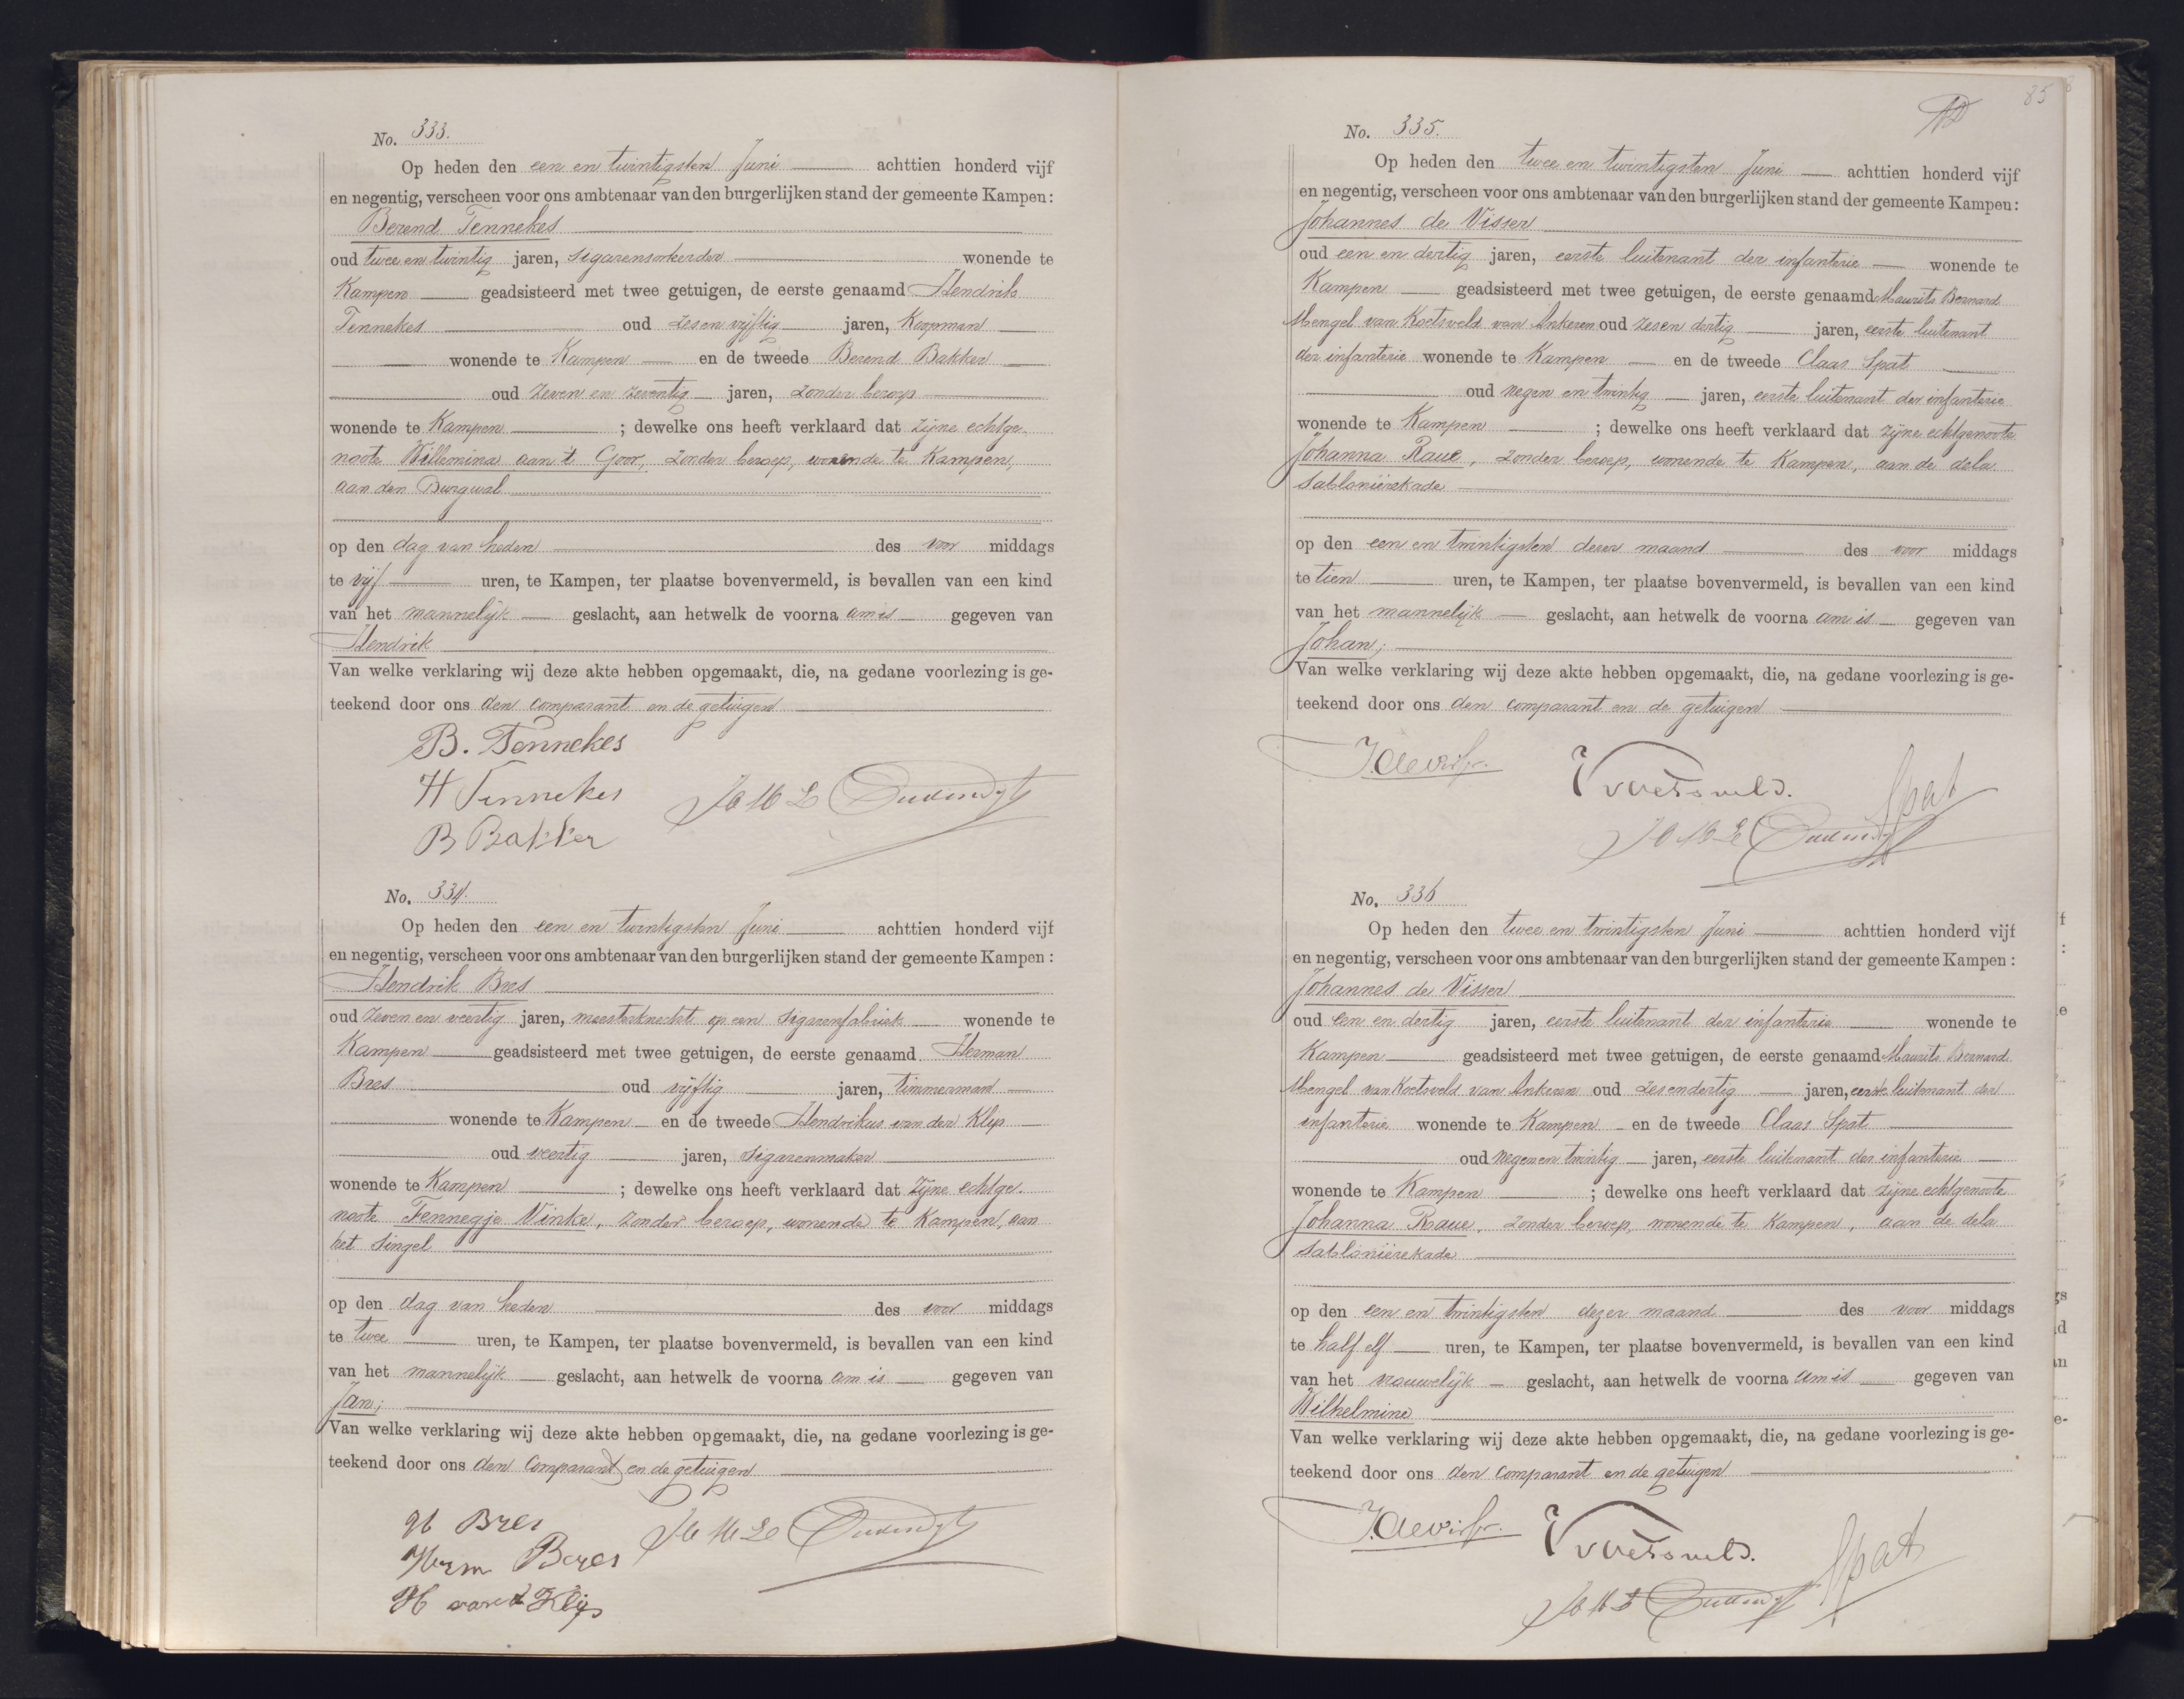 No. 333.
Op heden den een en twintigsten Juni achttien honderd vijf
en negentig, verscheen voor ons ambtenaar van den burgerlijken stand der gemeente Kampen:
Berend Tennekes
oud twee en twintig jaren, sigarensorteerder wonende te
Kampen geadsisteerd met twee getuigen, de eerste genaamd Hendrik
Tennekes oud zesen vijftig jaren, Koopman
wonende te Kampen en de tweede Berend Bakker
oud zeven en zeventig jaren, zonder beroep
wonende te Kampen ; dewelke ons heeft verklaard dat zijne echtge-
noote Willemina aan 't Goor, zonder beroep, wonende te Kampen,
aan den Burgwal
op den dag van heden des voor middags
te vijf uren, te Kampen, ter plaatse bovenvermeld, is bevallen van een kind
van het mannelijk geslacht, aan hetwelk de voorna am is gegeven van
Hendrik
Van welke verklaring wij deze akte hebben opgemaakt, die, na gedane voorlezing is ge-
teekend door ons den comparant en de getuigen
B. Tennekes
H Tennekes
B Bakker
No. 334.
Op heden den een en twintigsten Juni achttien honderd vijf
en negentig, verscheen voor ons ambtenaar van den burgerlijken stand der gemeente Kampen:
Hendrik Bres
oud zeven en veertig jaren, meesterknecht op een sigarenfabriek wonende te
Kampen geadsisteerd met twee getuigen, de eerste genaamd Herman
Bres oud vijftig jaren, timmerman
wonende te Kampen en de tweede Hendrikus van der Klip
oud veertig jaren, sigarenmaker
wonende te Kampen ; dewelke ons heeft verklaard dat zijne echtge-
noote Fennegje Vinke, zonder beroep, wonende te Kampen, aan
het Singel
op den dag van heden des voor middags
te twee uren, te Kampen, ter plaatse bovenvermeld, is bevallen van een kind
van het mannelijk geslacht, aan hetwelk de voorna am is gegeven van
Jan;
Van welke verklaring wij deze akte hebben opgemaakt, die, na gedane voorlezing is ge-
teekend door ons den comparant en de getuigen
H Bres
Herm Bres
H van d Klip
85
No. 335.
Op heden den twee en twintigsten Juni achttien honderd vijf
en negentig, verscheen voor ons ambtenaar van den burgerlijken stand der gemeente Kampen:
Johannes de Visser
oud een en dertig jaren, eerste luitenant der infanterie wonende te
Kampen geadsisteerd met twee getuigen, de eerste genaamd Maurits Bernard
Mengel van Koetsveld van Ankeren oud zesen dertig jaren, eerste luitenant
der infanterie wonende te Kampen en de tweede Claas Spat
oud negen en twintig jaren, eerste luitenant der infanterie
wonende te Kampen ; dewelke ons heeft verklaard dat zijne echtgenoote
Johanna Raue, zonder beroep, wonende te Kampen, aan de dela
Sablonièrekade
op den een en twintigsten dezer maand des voor middags
te tien uren, te Kampen, ter plaatse bovenvermeld, is bevallen van een kind
van het mannelijk geslacht, aan hetwelk de voorna am is gegeven van
Johan;
Van welke verklaring wij deze akte hebben opgemaakt, die, na gedane voorlezing is ge-
teekend door ons den comparant en de getuigen
Spat
No. 336
Op heden den twee en twintigsten Juni achttien honderd vijf
en negentig, verscheen voor ons ambtenaar van den burgerlijken stand der gemeente Kampen:
Johannes de Visser
oud een en dertig jaren, eerste luitenant der infanterie wonende te
Kampen geadsisteerd met twee getuigen, de eerste genaamd Maurits Bernard
Mengel van Koetsveld van Ankeren oud zesendertig jaren, eerste luitenant der
infanterie wonende te Kampen en de tweede Claas Spat
oud negen en twintig jaren, eerste luitenant der infanterie
wonende te Kampen ; dewelke ons heeft verklaard dat zijne echtgenoote
Johanna Raue, zonder beroep, wonende te Kampen, aan de dela
Sablonièrekade
op den een en twintigsten dezer maand des voor middags
te half elf uren, te Kampen, ter plaatse bovenvermeld, is bevallen van een kind
van het vrouwelijk geslacht, aan hetwelk de voorna am is gegeven van
Wilhelmine
Van welke verklaring wij deze akte hebben opgemaakt, die, na gedane voorlezing is ge-
teekend door ons den comparant en de getuigen
Spat